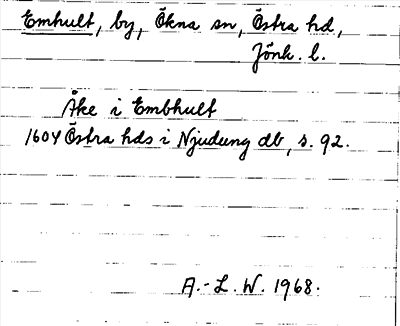 Emhult, by, Ökna sn, Östra hd,
Jönk. l.
Åke i Embhult
1604 Östra hds i Njudung db, s. 92.
A.-L. W. 1968.